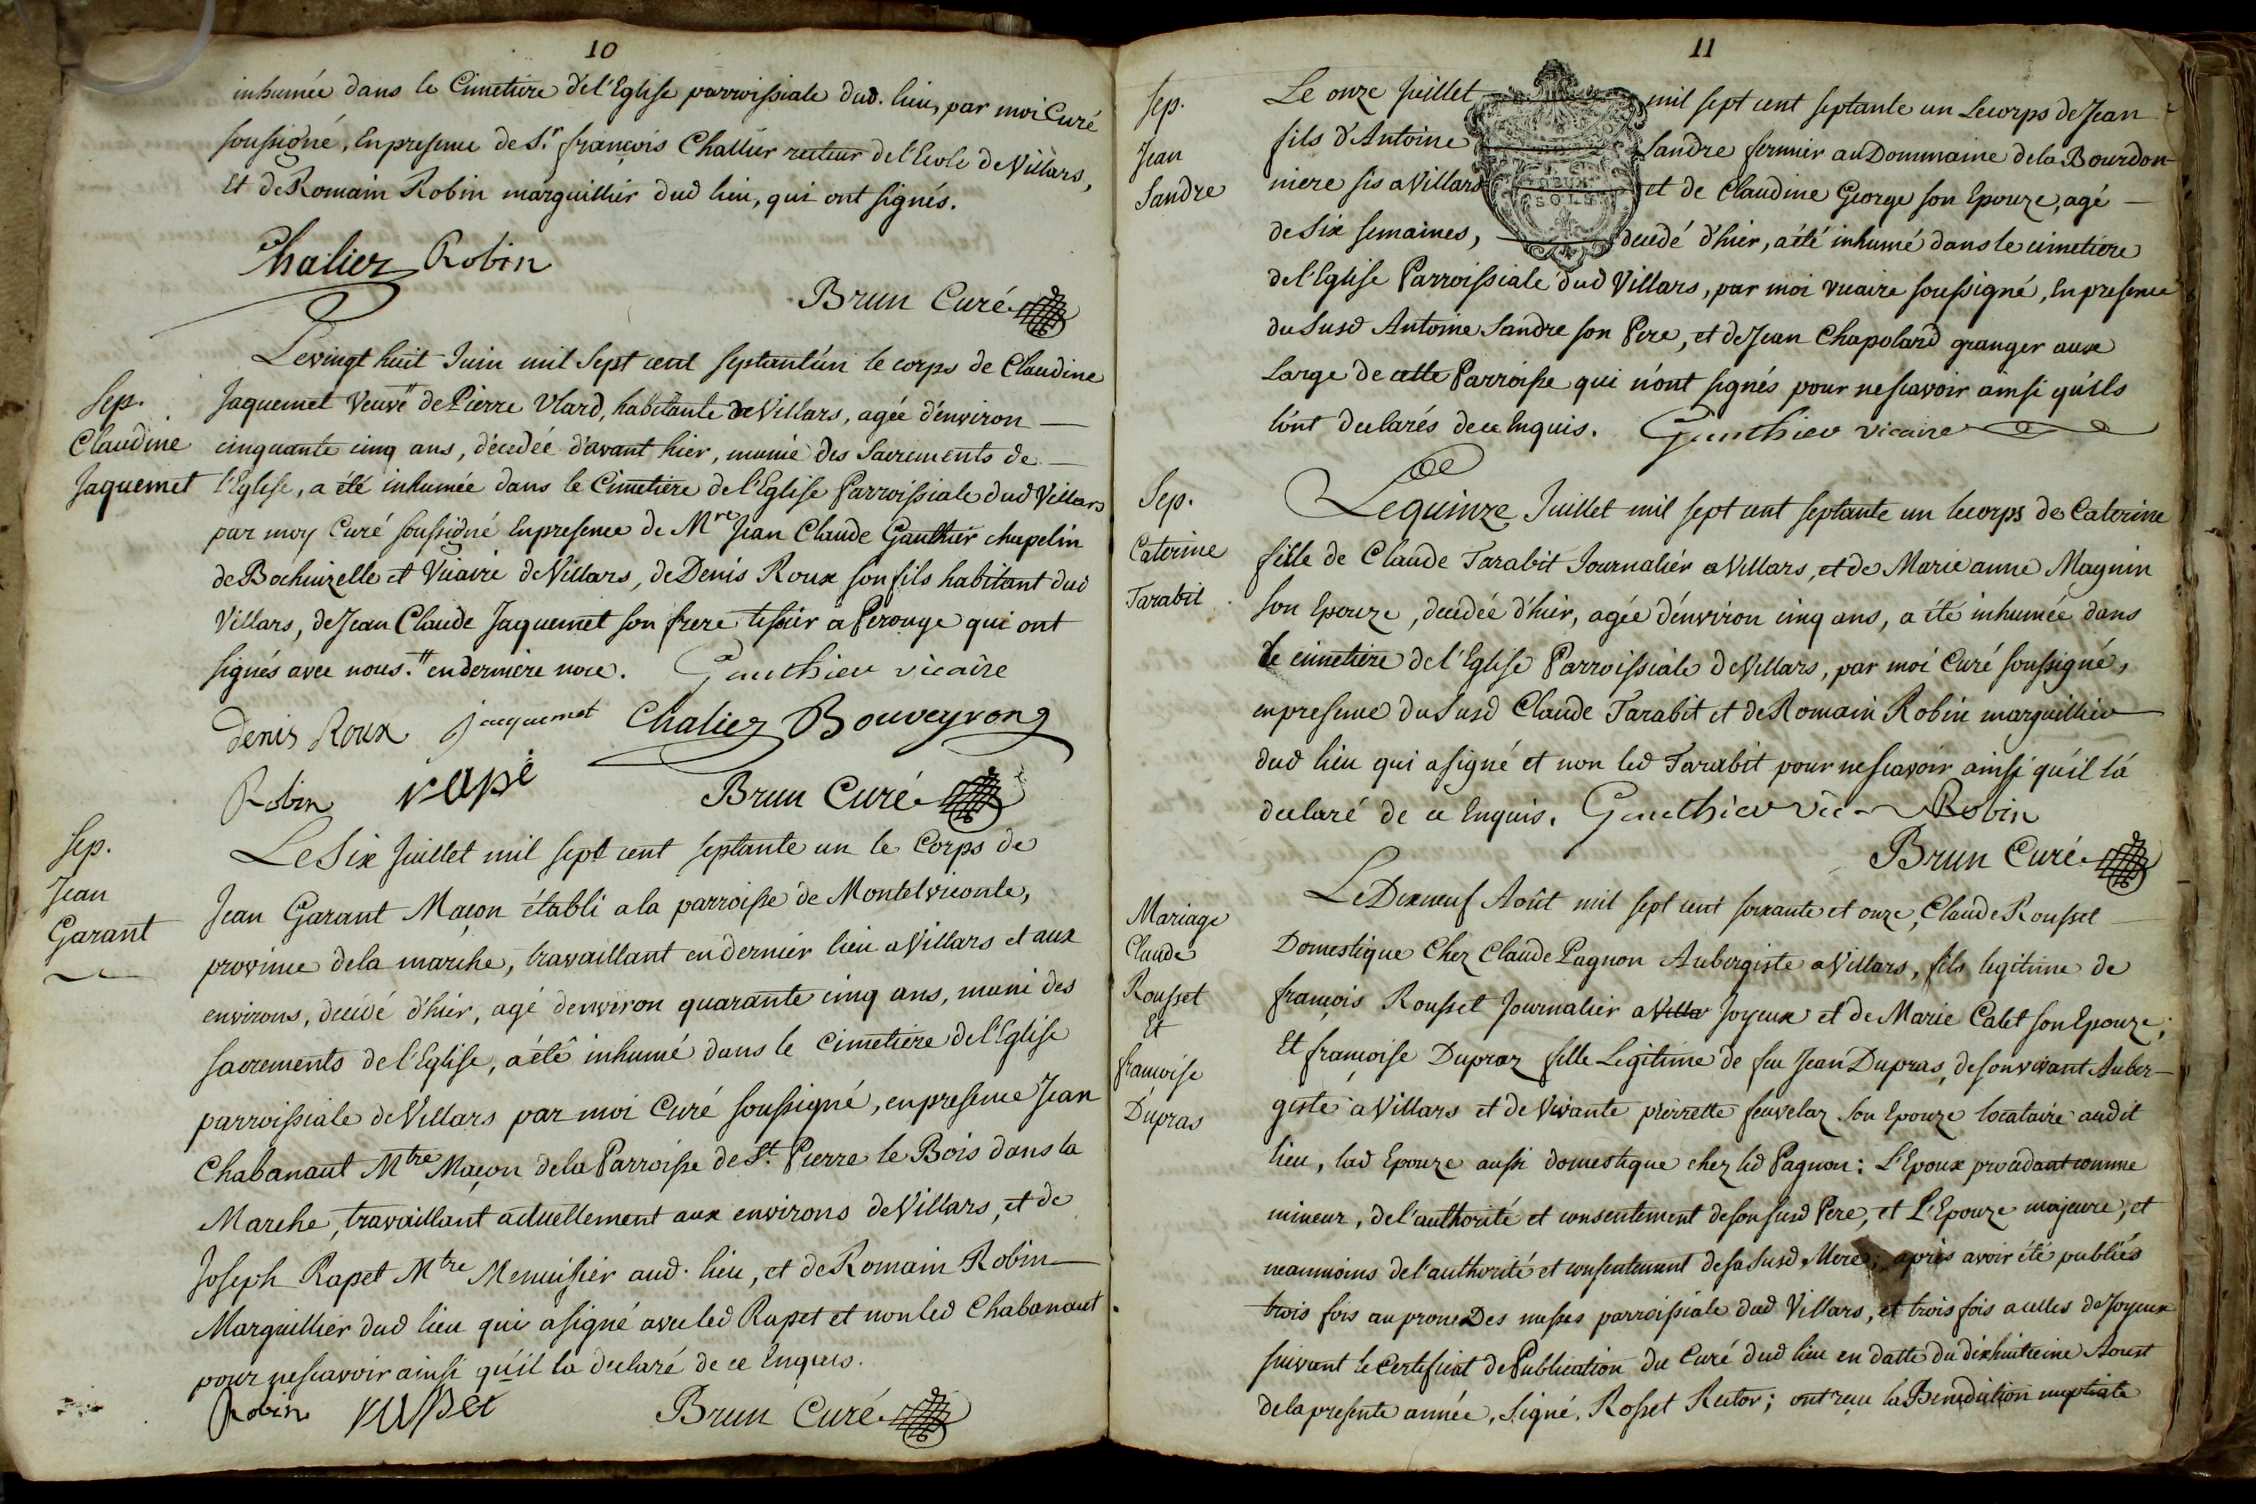 10
inhumée dans le Cimetiere de l'Eglise parroissiale dud. lieu, par moi Curé
soussigné, En presence de Sr. françois Challier recteur de l'Ecole de Villars,
Et de Romain Robin marguillier dud lieu, qui ont signés.
Chaliez Robin
Brun Curé
Sep.
Claudine
Jaquemet
Le vingt huit Juin mil Sept cent septant'ún le corps de Claudine
Jaquemet Veuve" de Pierre Vlard, habitante de Villars, agée d'environ
cinquante cinq ans, décedée d'avant hier, munie des Sacrements de
l'Eglise, a été inhumée dans le Cimetiere de l'Eglise Parroissiale dud Villars
par moy Curé soussigné En presence de Mre Jean Claude Gauthier chapelin
de Bochuizelle et Vicaire de Villars, de Denis Roux son fils habitant dud
Villars, de Jean Claude Jaquemet son frere tissier a Perouge qui ont
signés avec nous. " en derniere noce. Gauthier vicaire
Denis Roux jaquemet Chaliez Bouveyron
Robin rapé Brun Curé
Sep.
Jean
Garant
Le Six Juillet mil sept cent septante un le Corps de
Jean Garant Maçon établi a la parroisse de Montelviconte,
province de la marche, travaillant en dernier lieu a Villars et aux
environs, decedé d'hier, agé d'environ quarante cinq ans, muni des
sacrements de l'Eglise, a été inhumé dans le cimetiere de l'Eglise
parroissiale de Villars par moi Curé soussigné, en presence Jean
Chabanaut Mtre Maçon de la Parroisse de St. Pierre le Bois dans la
Marche, travaillant actuellement aux environs de Villars, et de
Joseph Rapet Mtre Menuisier aud. lieu, et de Romain Robin
Marguillier dud lieu qui a signé avec led Rapet et non led Chabanaut
pour ne scavoir ainsi qu'il la declaré de ce Enquis.
Robin rapet Brun Curé
11
Sep.
Jean
Sandre
Le onze Juillet mil sept cent septante un Le corps de Jean
fils d'Antoine Sandre fermier au Dommaine de la Bourdon-
niere sis a Villars et de Claudine George son Epouze, agé
de Six semaines, decedé d'hier, a été inhumé dans le cimetiere
de l'Eglise Parroissiale dud Villars, par moi vicaire soussigné, En presence
du Susd Antoine Sandre son Pere, et de Jean Chapolard granger aux
Large de cette Parroisse qui n'ont signés pour ne scavoir ainsi qu'ils
l'ont declarés de ce Enquis. Gauthier vicaire
DEUX
SOLS
Sep.
Caterine
Tarabit
Le quinze Juillet mil sept cent septante un le corps de Caterine
fille de Claude Tarabit Journaliér a Villars, et de Marie anne Magnin
son Epouze, decedée d'hier, agée d'environ cinq ans, a été inhumée dans
le cimetiere de l'Eglise Parroissiale de Villars, par moi Curé soussigné,
en presence du Susd Claude Tarabit et de Romain Robin marguillier
dud lieu qui a signé et non led Tarabit pour ne scavoir ainsi qu'il l'a
declaré de ce Enquis. Gauthier vic Robin
Brun Curé
Mariage
Claude
Rousset
Et
françoise
Dupras
Le Dixneuf Août mil sept cent soixante et onze, Claude Rousset
Domestique Chez Claude Pagnon Aubergiste a Villars, fils legitime de
françois Rousset Journalier a Villar Joyeux et de Marie Calet son Epouze;
Et françoise Dupraz fille Legitime de feu Jean Dupras, de son vivant Auber-
giste a Villars et de Vivante pierrette feuvelaz son Epouze locataire audit
lieu, lad Epouze aussi domestique chez led Pagnon: L'Epoux procedant comme
mineur, de l'authorité et consentement de son susd Pere, et L'Epouze majeure, et
neanmoins de l'authorité et consentement de sa susd Mere; après avoir été publiés
trois fois au prone Des messes parroissiale dud Villars, et trois fois a celles de Joyeux
suivant le certificat de Publication du Curé dud lieu en datte du dixhuitieme Aoust
de la presente année, Signé, Rosset Rector; ont reçu la Benediction nuptiale